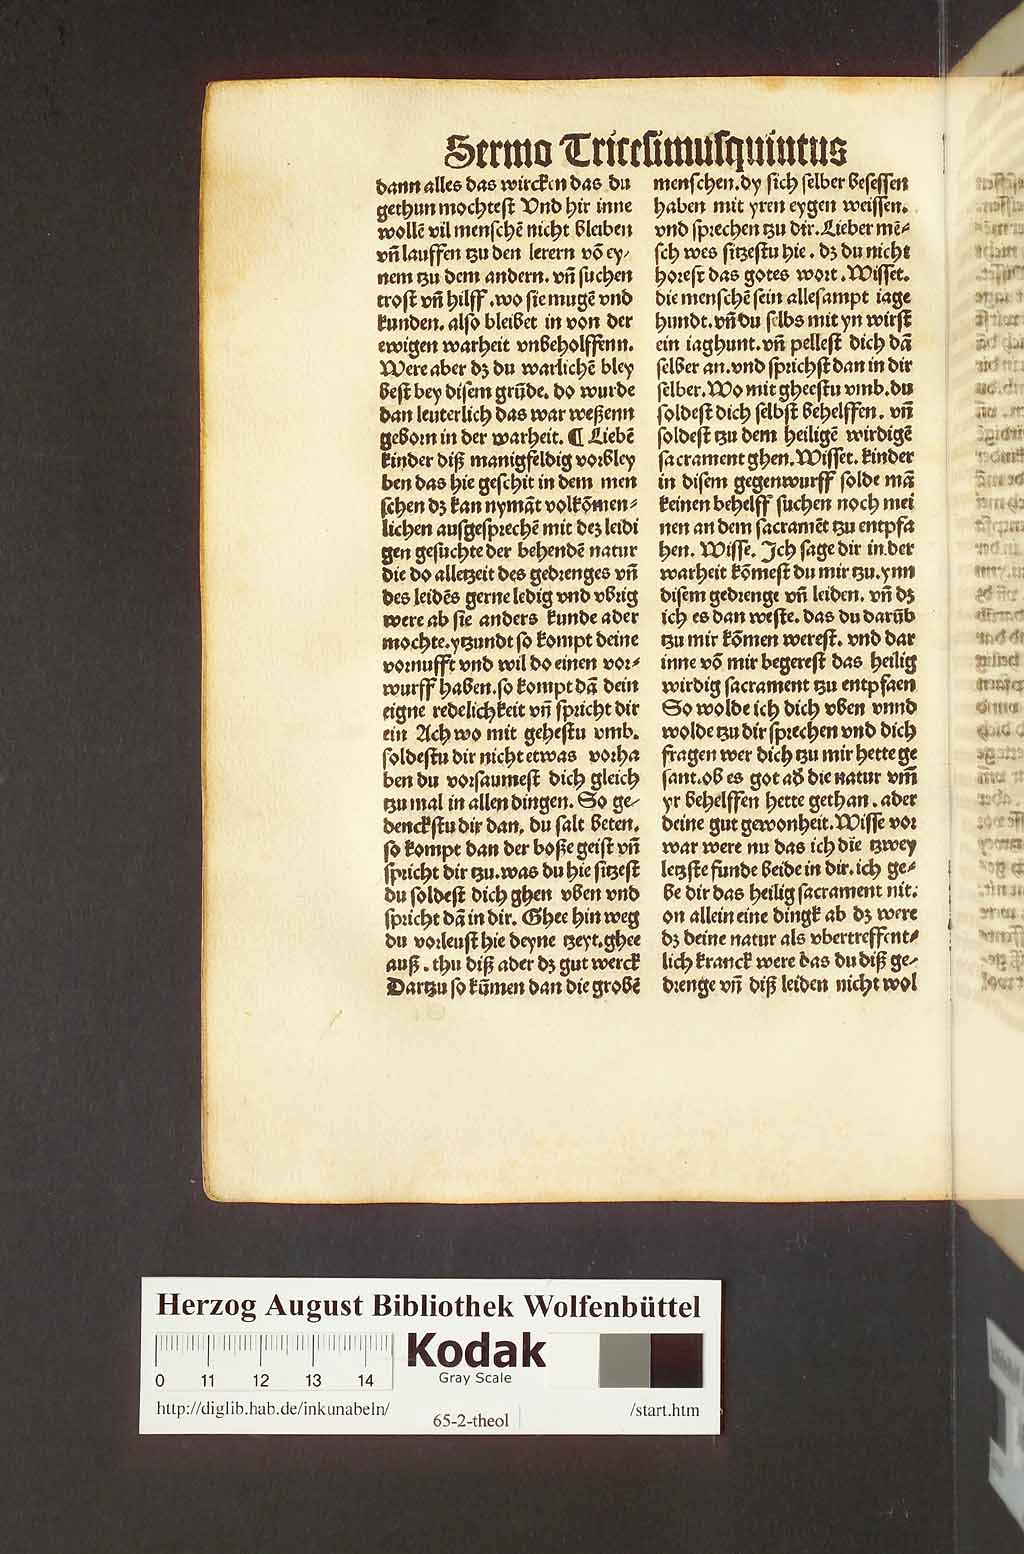 Sermo Tricesimusquintus
dann alles das wircken das du
gethun mochtest Vnd hir inne
wollē vil menschē nicht bleiben
vn̄ lauffen tzu den lerern vō ey⸗
nem tzu dem andern. vn̄ suchen
trost vn̄ hilff .wo sie mugē vnd
kunden. also bleibet in von der
ewigen warheit vnbeholffenn.
Were aber dz du warlichē bley
best bey disem grūde. do wurde
dan leuterlich das war weßenn
geborn in der warheit. ¶ Liebē
kinder diß manigfeldig vorbley
ben das hie geschit in dem men
schen dz kan nymāt volkōmen⸗
lichen ausgesprechē mit dez leidi
gen gesuchte der behendē natur
die do alletzeit des gedrenges vn̄
des leidēs gerne ledig vnd vbrig
were ab sie anders kunde ader
mochte.ytzundt so kompt deine
vornufft vnd wil do einen vor⸗
wurff haben.so kompt dā dein
eigne redelichkeit vn̄ spricht dir
ein Ach wo mit gehestu vmb.
soldestu dir nicht etwas vorha
ben du vorsaumest dich gleich
tzu mal in allen dingen. So ge⸗
denckstu dir dan, du salt beten.
so kompt dan der boße geist vn̄
spricht dir tzu.was du hie sitzest
du soldest dich ghen vben vnd
spricht dā in dir. Ghee hin weg
du vorleust hie deyne tzeyt.ghee
auß . thu diß ader dz gut werck
Dartzu so kūmen dan die grobē
menschen.dy sich selber besessen
haben mit yren eygen weissen.
vnd sprechen tzu dir.Lieber mē⸗
sch wes sitzestu hie . dz du nicht
horest das gotes wort .Wisset.
die menschē sein allesampt iage
hundt.vn̄ du selbs mit yn wirst
ein iaghunt.vn̄ pellest dich dā
selber an.vnd sprichst dan in dir
selber.Wo mit gheestu vmb.du
soldest dich selbst behelffen. vn̄
soldest tzu dem heiligē wirdigē
sacrament ghen.Wisset. kinder
in disem gegenwurff solde mā
keinen behelff suchen noch mei
nen an dem sacramēt tzu entpfa
hen. Wisse. Ich sage dir in.der
warheit kōmest du mir tzu.ynn
disem gedrenge vn̄ leiden. vn̄ dz
ich es dan weste. das du darūb
tzu mir kōmen werest. vnd dar
inne vō mir begerest das heilig
wirdig sacrament tzu entpfaen
So wolde ich dich vben vnnd
wolde tzu dir sprechen vnd dich
fragen wer dich tzu mir hette ge
sant.ob es got ad̄ die natur vm̄
yr behelffen hette gethan . ader
deine gut gewonheit.Wisse vor
war were nu das ich die tzwey
letzste funde beide in dir.ich ge⸗
be dir das heilig sacrament nit:
on allein eine dingk ab dz were
dz deine natur als vbertreffent⸗
lich kranck were das du diß ge⸗
drenge vn̄ diß leiden nicht wol
Herzog August Bibliothek Wolfenbüttel
Kodak
Gray Scale
0 11 12 13 14
http://diglib.hab.de/inkunabeln/
65-2-theol
/start.htm